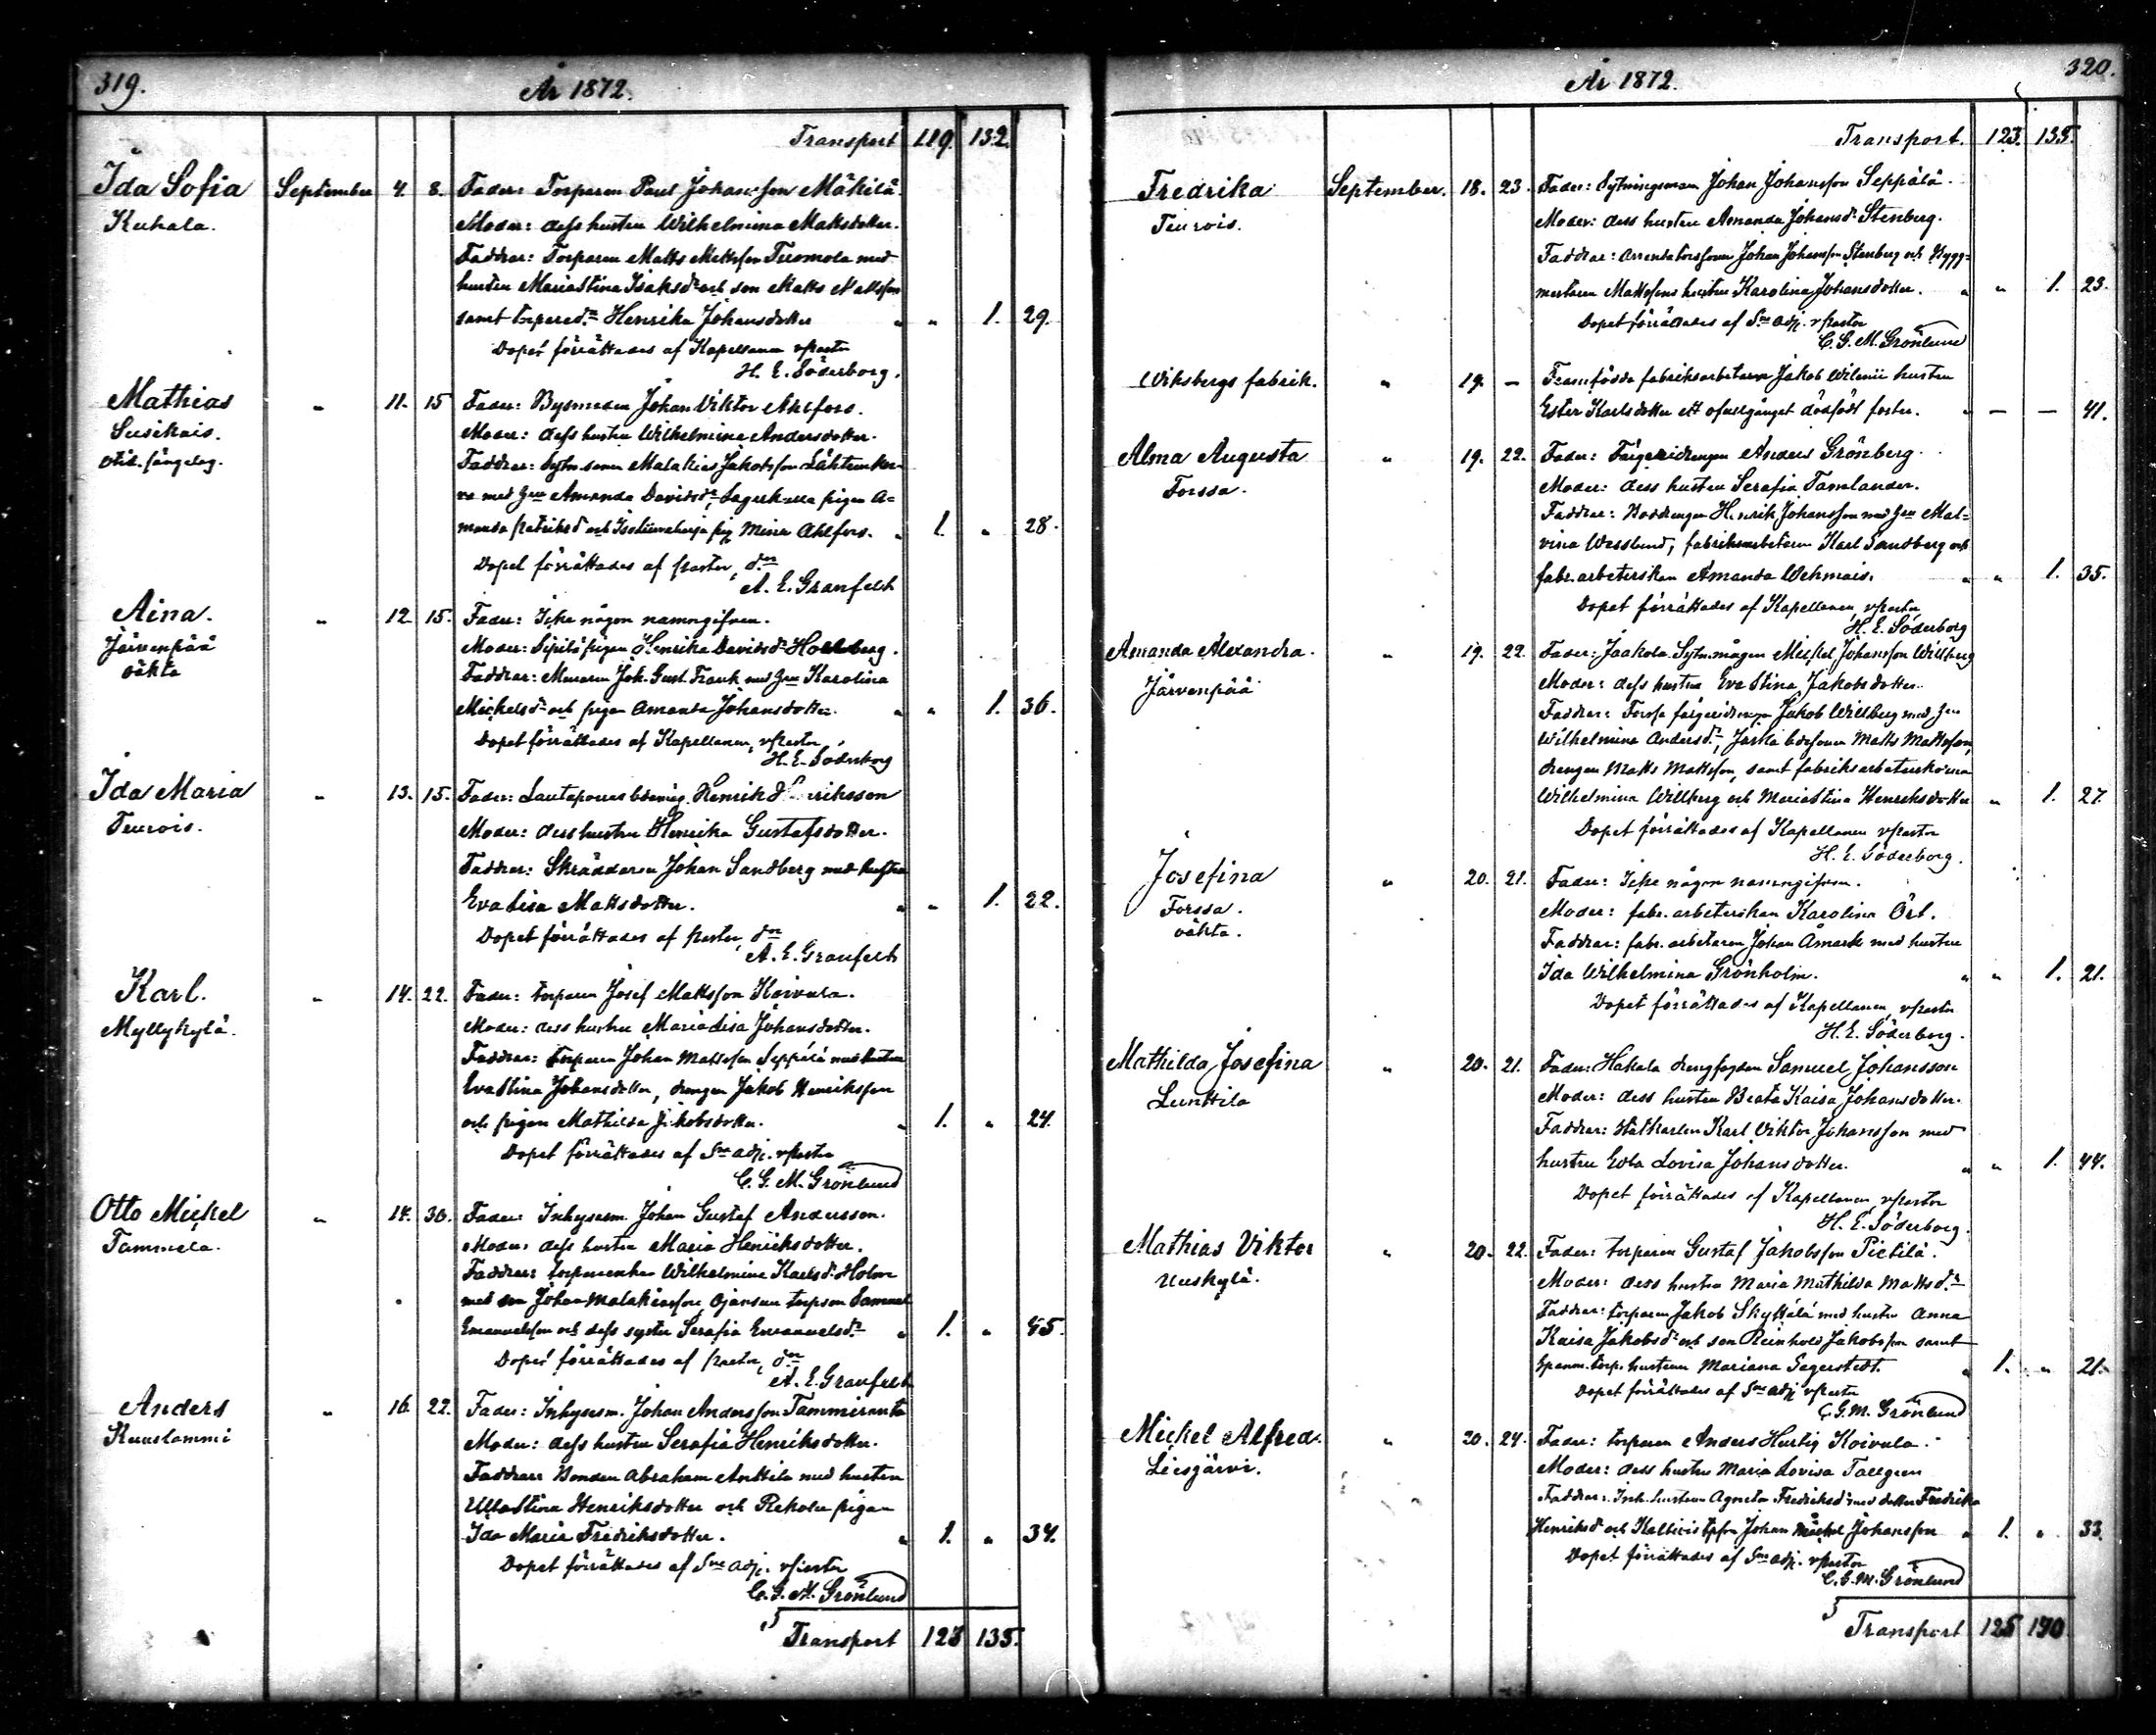 319.
År 1872.
Transport 119. 132.
Ida Sofia September 4. 8. Fader: Torparen Paul Johansson Mäkilä.
Kuhala. Moder: dess hustru Wilhelmina Mattsdotter.
Faddrar: Torparen Matts Mattsson Tuomola med
hustru Maria Stina Isaksdr och son Matts Mattsson
samt torpared:r Henrika Johansdotter " " 1. 29.
Dopet förrättades af Kapellanen vPastor
H. E. Söderborg.
Mathias " 11. 15 Fader: Bysmeden Johan Viktor Ahlfors.
Susikais. Moder: dess hustru Wilhelmina Andersdotter.
Faddrar: Sytn. sonen Malakias Jakobsson
med Amanda Davidsdr pigan A=
manda och pig Mina Ahlfors. " 1. " 28.
Dopet förrättades af Pastor, d:n
A. E. Granfelt
Aina. " 12. 15. Fader: Icke någon namngifven.
Järvenpää Moder: pigan Henrika Davidsdr Hollberg.
oäkta Faddrar: Muraren Joh. Gust. Frank med Karolina
Mickelsdr och pigan Amanda Johansdotter. " " 1. 36.
Dopet förrättades af Kapellanen, vPastor
H. E. Söderborg
Ida Maria " 13. 15. Fader: Henrik Henriksson
Teurois. Moder: dess hustru Henrika Gustafsdotter.
Faddrar: Skräddaren Johan Sandberg med hustru
Eva Lisa Mattsdotter. " " 1. 22.
Dopet förrättades af Pastor, d:n
A. E. Granfelt
Karl. " 14. 22. Fader: torparen Josef Mattsson Koivula.
Myllykylä. Moder: dess hustru Maria Lisa Johansdotter.
Faddrar: torparen Johan Mattsson Seppälä med hustru
Eva Stina Johansdotter, drengen Jakob Henriksson
och pigan Mathilda Jakobsdotter. " 1. " 24.
Dopet förrättades af S:ne adj. vPastor
C. G. M. Grönlund
Otto Mickel " 14. 30. Fader: Inhysesm. Johan Gustaf Andersson.
Tammela. Moder: dess hustru Maria Henriksdotter.
Faddrar: torparenkan Wilhelmina Karlsdr Holm
med son Johan Malakiasson, Ojansuu torpson Samuel
Emanuelsson och dess syster Serafia Emanuelsdr " 1. " 45.
Dopet förrättades af Pastor, d:n
A. E. Granfelt
Anders " 16. 22. Fader: Inhysesm. Johan Andersson Tammiranta
Kuuslammi Moder: dess hustru Serafia Henriksdotter.
Faddrar: Bonden Abraham Anttila med hustru
Ulla Stina Henriksdotter och Rekola pigan
Ida Maria Fredriksdotter. " 1. " 34.
Dopet förrättades af S:ne adj. vPastor
C. G. M. Grönlund
Transport 123 135.
320.
År 1872.
Transport. 123. 135.
Fredrika September. 18. 23. Fader: Sytningsman Johan Johansson Seppälä.
Teurois. Moder: dess hustru Amanda Johansdr Stenberg.
Faddrar: Arrendatorssonen Johan Johansson Stenberg och Bygg=
mästaren Mattssons hustru Karolina Johansdotter. " " 1. 23.
Dopet förrättades af S:ne adj. vPastor
C. G. M. Grönlund
Wiksbergs fabrik. " 19. — Framfödde fabriksarbetaren Jakob hustru
Ester Karlsdotter ett ofullgånget dödfödt foster. " — — 41.
Alma Augusta " 19. 22. Fader: Färgeridrengen Anders Grönberg.
Forssa. Moder: dess hustru Serafia Tamlander.
Faddrar: Henrik Johansson med Mal=
vina Wesslund, fabriksarbetaren Karl Sandberg och
fabr. arbeterskan Amanda Wehmais. " " 1. 35.
Dopet förrättades af Kapellanen, vPastor
H. E. Söderborg
Amanda Alexandra. " 19. 22. Fader: Jaakola Sytn.mågen Mickel Johansson Willberg
Järvenpää Moder: dess hustru Eva Stina Jakobsdotter.
Faddrar: Forssa färgeridrengen Jakob Willberg med
Wilhelmina Andersdr, Matts Mattsson,
drengen Matts Mattsson, samt fabriksarbeterskorna
Wilhelmina Willberg och Maria Stina Henriksdotter " 1. 27.
Dopet förrättades af Kapellanen vPastor
H. E. Söderborg.
Josefina " 20. 21. Fader: Icke någon namngifven.
Forssa. Moder: fabr. arbeterskan Karolina Ört.
oäkta. Faddrar: fabr. arbetaren Johan Åmark med hustru
Ida Wilhelmina Grönholm. " " 1. 21.
Dopet förrättades af Kapellanen, vPastor
H. E. Söderborg.
Mathilda Josefina " 20. 21. Fader: Hakala drengfogden Samuel Johansson
Lunttila Moder: dess hustru Beata Kaisa Johansdotter.
Faddrar: Statkarlen Karl Viktor Johansson med
hustru Edla Lovisa Johansdotter. " " 1. 44.
Dopet förrättades af Kapellanen, vPastor
H. E. Söderborg.
Mathias Viktor " 20. 22. Fader: torparen Gustaf Jakobsson Pietilä.
Uuskylä. Moder: dess hustru Maria Mathilda Mattsdr
Faddrar: torparen Jakob Skyttälä med hustru Anna
Kaisa Jakobsdr och son Reinhold Jakobsson samt
torp. hustrun Mariana Segerstedt. " 1. " 21.
Dopet förrättades af S:ne adj vPastor
C. G. M. Grönlund
Mickel Alfred. " 20. 24. Fader: torparen Anders Hurtig Koivula.
Liesjärvi. Moder: dess hustru Maria Lovisa Tallgren
Faddrar: Inh. hustrun Agneta Fredriksdr med dotter Fredrika
Henriksdr och Johan Mickel Johansson " 1. " 33.
Dopet förrättades af S:ne adj. vPastor
C. G. M. Grönlund
Transport 125 140